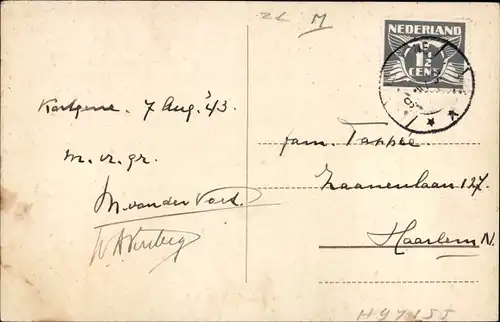 ZL M
NEDERLAND
1½
CENT
Kortgene. 7 Aug. '43.
m. v. gr.
M. van der Vort.
fam. Tappee
Zaanenlaan 127.
Haarlem N.
H97155